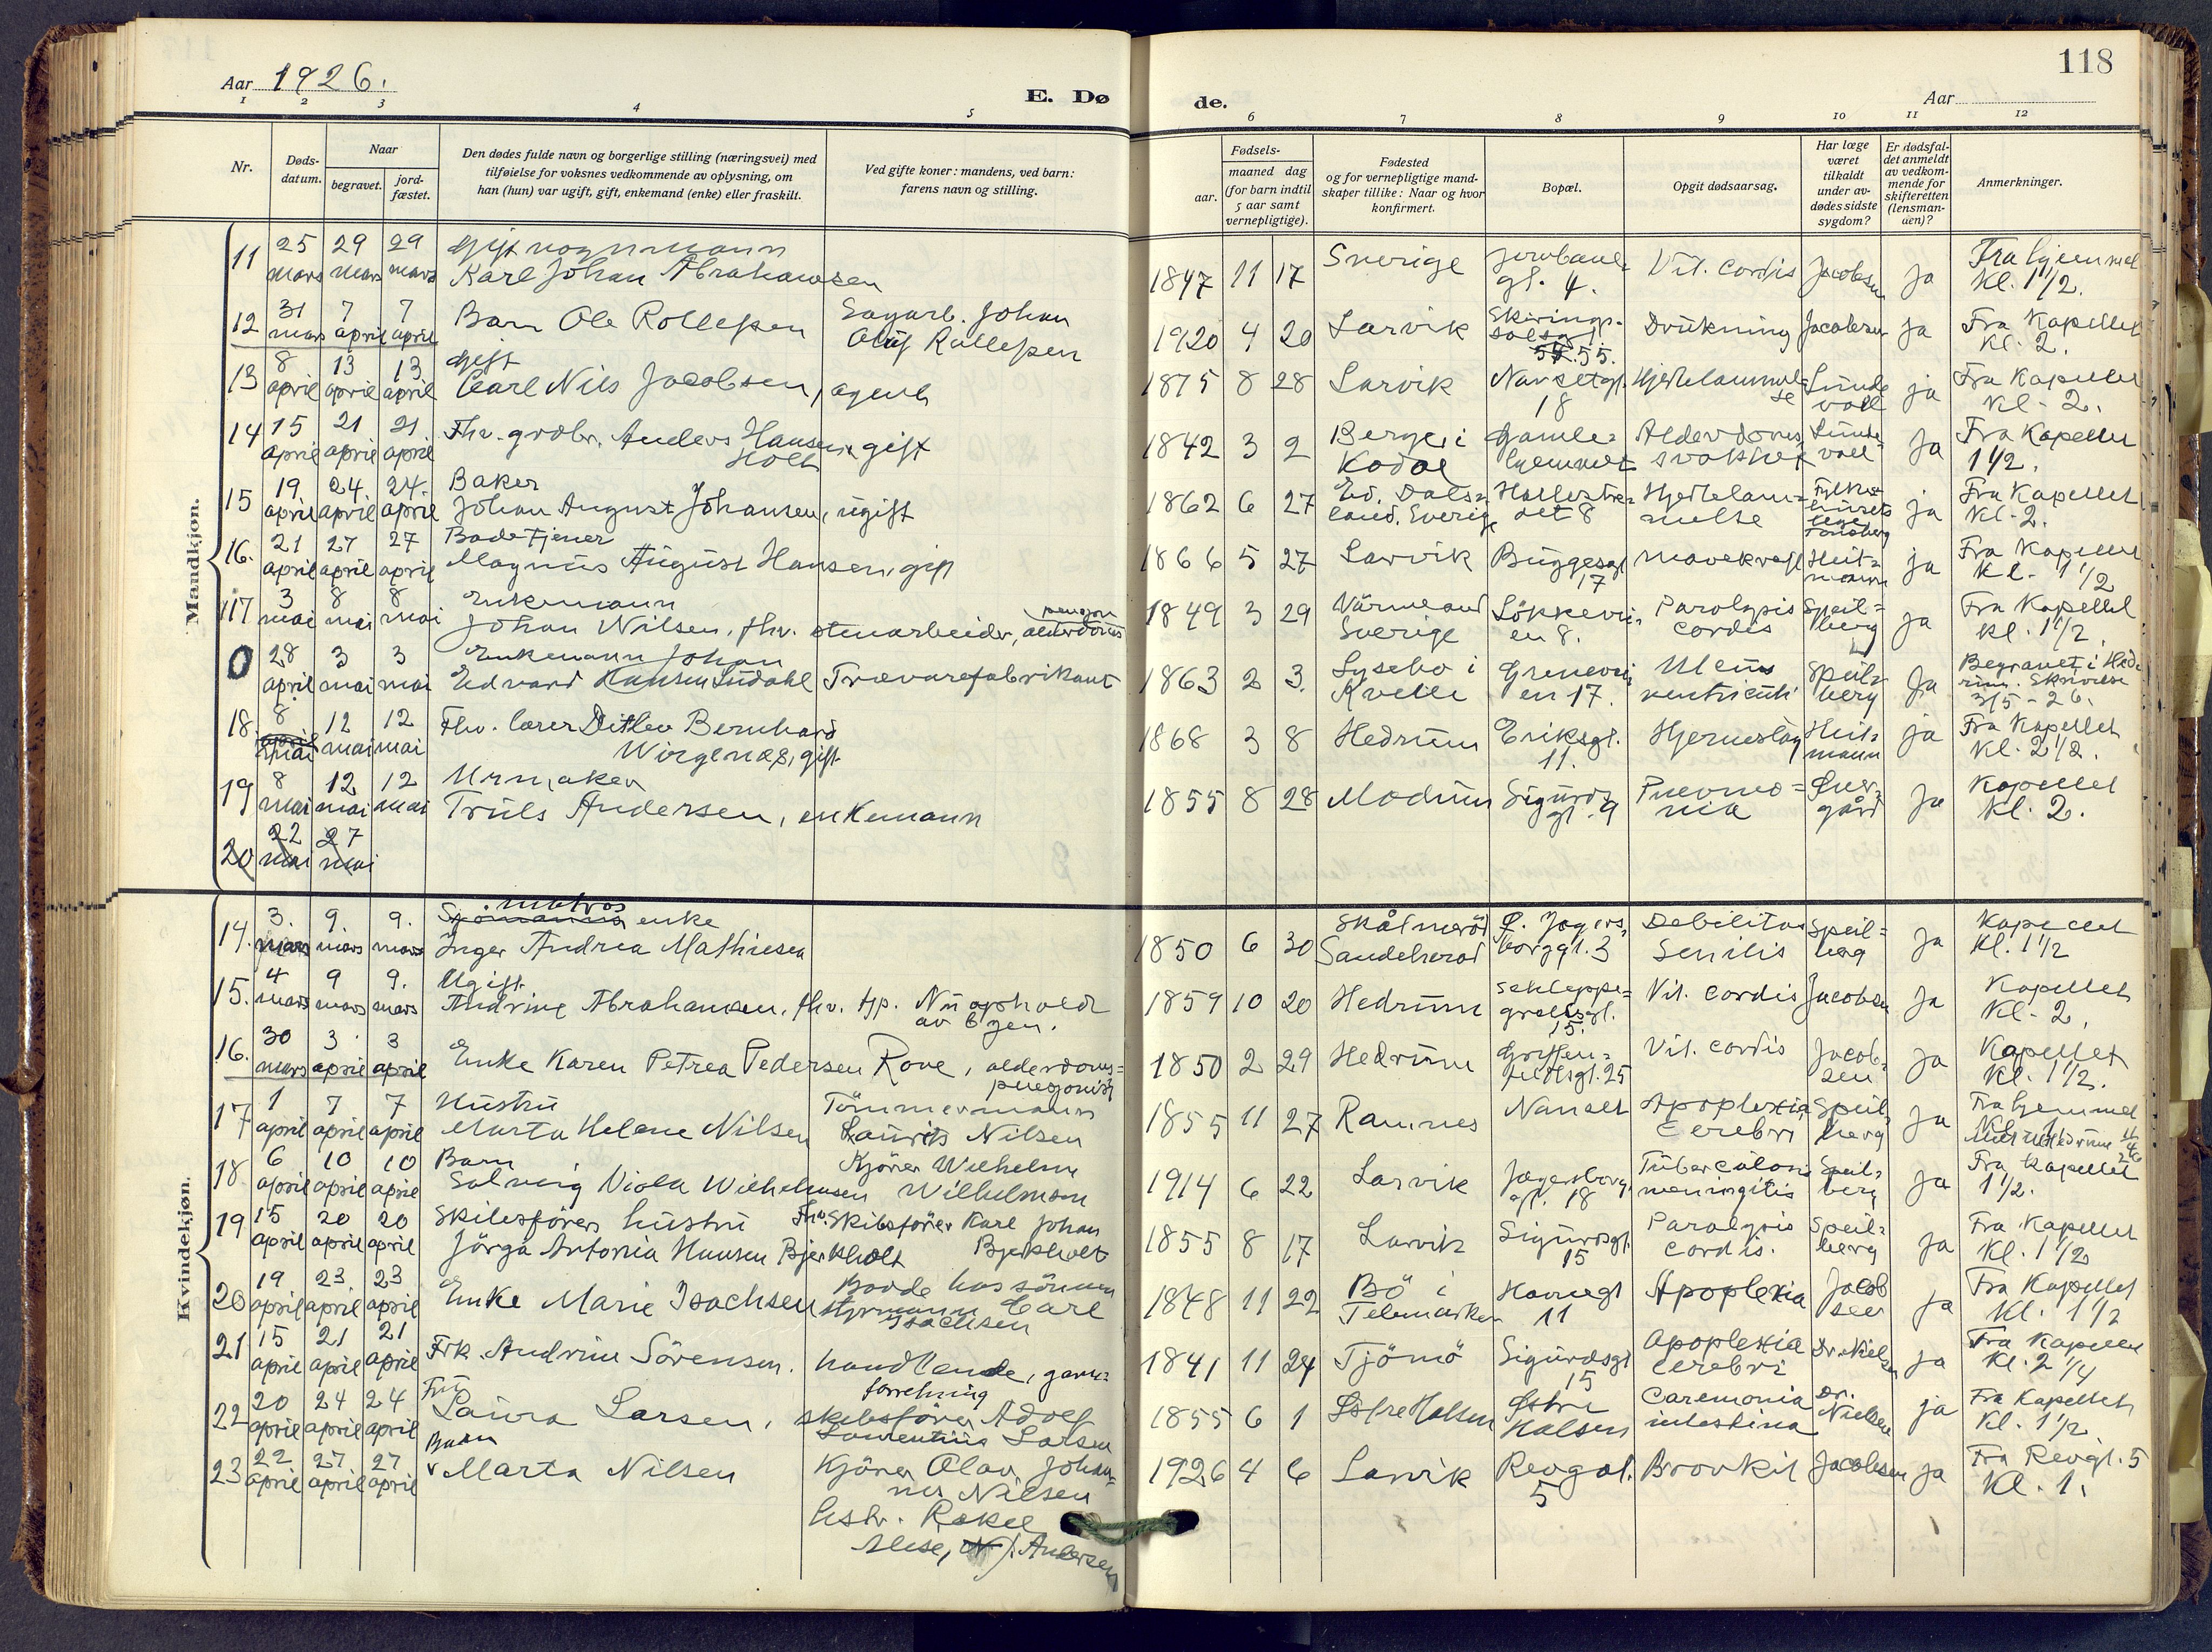 Aar 1926.
E. Dø
de.
118
Aar
1 2 3 4 5 6 7 8 9 10 11 12
Nr.
Døds-
datum.
Naar
begravet.
jord-
fæstet.
Den dødes fulde navn og borgerlige stilling (næringsvei) med
tilføielse for voksnes vedkommende av oplysning, om
han (hun) var ugift, gift, enkemand (enke) eller fraskilt.
Ved gifte koner: mandens, ved barn:
farens navn og stilling.
Fødsels-
aar.
maaned dag
(for barn indtil
5 aar samt
vernepligtige).
Fødested
og for vernepligtige mand-
skaper tillike: Naar og hvor
konfirmert.
Bopæl.
Opgit dødsaarsag.
Har læge
været
tilkaldt
under av-
dødes sidste
sygdom?
Er dødsfal-
det anmeldt
av vedkom-
mende for
skifteretten
(lensman-
nen)?
Anmerkninger.
Mandkjøn.
11 25 mars 29 mars 29 mars Gift vognmann
Karl Johan Abrahamsen 1847 11 17 Sverige gt. 4. Vit. cordis Jacobsen ja Fra hjemmet
Kl. 1 1/2.
12 31 mars 7 april 7 april Barn Ole Rollefsen Sagarb. Johan
Olaf Rollefsen 1920 4 20 Larvik Skirings-
salsgt.
55. Drukning Jacobsen ja Fra Kapellet
Kl. 2.
13 8 april 13 april 13 april Gift
Carl Nils Jacobsen, agent 1875 8 28 Larvik Nansetgt.
18 Hjertelammel-
se Linde
vall ja Fra Kapellet
Kl. 2.
14 15 april 21 april 21 april Fhv. grdbr. Anders Hansen Holt, gift 1842 3 2 Berge i
Kodal Gamle-
hjemmet Alderdoms
svakhet Linde-
vall ja Fra Kapellet
1 1/2.
15 19. april 24. april 24. april Baker
Johan August Johansen, ugift 1862 6 27 Ed. Dals-
land. Sverige 8 Hjertelam-
melse Tønsberg ja Fra Kapellet
Kl. 2.
16. 21 april 27 april 27 april Badetjener
Magnus August Hansen, gift 1866 5 27 Larvik Buggesgt
17 Mavekreft Heit-
mann ja Fra Kapellet
Kl. 1 1/2
17 3 mai 8 mai 8 mai Enkemann
Johan Nilsen, fhv. stenarbeider, alderdoms
pensjon 1849 3 29 Värmland
Sverige Løkkevei-
en 8. Paralysis
cordis Speil-
berg ja Fra Kapellet
kl. 1 1/2.
0 28 april 3 mai 3 mai Enkemann Johan
Edvard Hansen Lüdahl Trævarefabrikant 1863 2 3. Lysebo i
Kvelle Grenevei
en 17. Ulcus
ventriculi Speil-
berg ja Begravet i Hed-
rum. Skrivelse
3/5 - 26.
18. 8 april mai 12 mai 12 mai Fhv. lærer Ditlev Bernhard
Wirgenes, gift 1868 3 8 Hedrum Eriksgt.
11. Hjerneslag Heit-
mann ja Fra Kapellet
Kl. 2 1/2.
19 8 mai 12 mai 12 mai Urmaker
Truls Andersen, enkemann 1855 8 28 Modum Sigurds
gt. 9 Pneumo-
nia gård ja Kapellet
Kl. 2.
20 22 mai 27 mai
Kvindekjøn.
14. 3. mars 9. mars 9. mars Sjømanns matros enke
Inger Andrea Mathiesen 1850 6 30 Skåtmeröd
Sandeherad borggt. 3 Debilitas
senilis Speil-
berg ja Kapellet
Kl. 1 1/2
15. 4 mars 9 mars 9. mars Ugift
Andrine Abrahamsen, fhv. tjp. Nu ophold
av byen. 1859 10 20 Hedrum Schleppe-
grellsgt.
15. Vit. cordis Jacobsen ja Kapellet
Kl. 2.
16. 30 mars 3 april 3 april Enke Karen Petrea Pedersen Rove, alderdoms-
pensjonist 1850 2 29 Hedrum Griffen-
feldtsgt. 25 Vit. cordis Jacob-
sen ja Kapellet
Kl. 1 1/2.
17 1 april 7 april 7 april Hustru
Marta Helene Nilsen Tömmermann
Laurits Nilsen 1855 11 27 Ramnes Nanset Apoplexia
cerebri Speil-
berg ja Fra hjemmet
18. 6 april 10 april 10 april Barn
Solveig Viola Wilhelmsen Kjörer Wilhelm
Wilhelmsen 1914 6 22 Larvik Jægersborg
gt. 18 Tuberculose
meningitis Speil-
berg ja Fra Kapellet
1 1/2.
19 15 april 20 april 20 april Skibsförers hustru
Jörga Antonia Hansen Bjerkholt Fhv. Skibsförer Karl Johan
Bjerkholt 1855 8 17 Larvik Sigurdsgt
15 Paralysis
cordis. Speil-
berg ja Fra Kapellet
Kl. 1 1/2
20 19 april 23. april 23 april Enke Marie Isachsen Bodde hos sönnen
styrmann Carl
Isachsen 1848 11 22 Bö i
Telemarken Havnegt
11 Apoplexia Jacob
sen ja Fra Kapellet
Kl. 1 1/2
21 15 april 21 april 21 april Frk. Andrine Sörensen. handlende, garn-
forretning 1841 11 24 Tjömö Sigurdsgt
15 Apoplexia
cerebri Dr. Nielsen ja Fra Kapellet
Kl. 2 1/4
22 20 april 24 april 24 april Fru
Laura Larsen, skibsförer Adolf
Laurentius Larsen 1855 6 1 Østre Halsen Østre
Halsen intestina Dr.
Nielsen ja Fra Kapellet
Kl. 1 1/2
23 22 april 27 april 27 april Barn
Marta Nilsen Kjörer Olav Johan-
nes Nilsen
hstr. Rakel
Alise, f. Andersen 1926 4 6 Larvik Revegt.
5 Bronkit Jacobsen ja Fra Revgt. 5
Kl. 1.